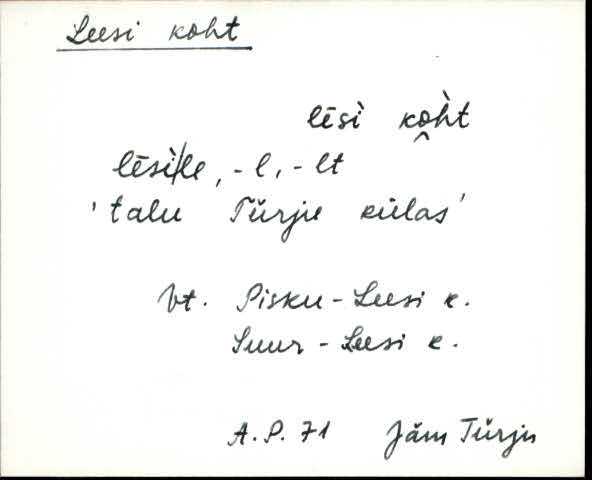 Leesi koht
lēsì kòh̭t
lēsì/le, -l, -lt
'talu Türju külas'
Vt. Pisku-Leesi k.
Suur-Leesi k.
A.P. 71 Jäm Türju